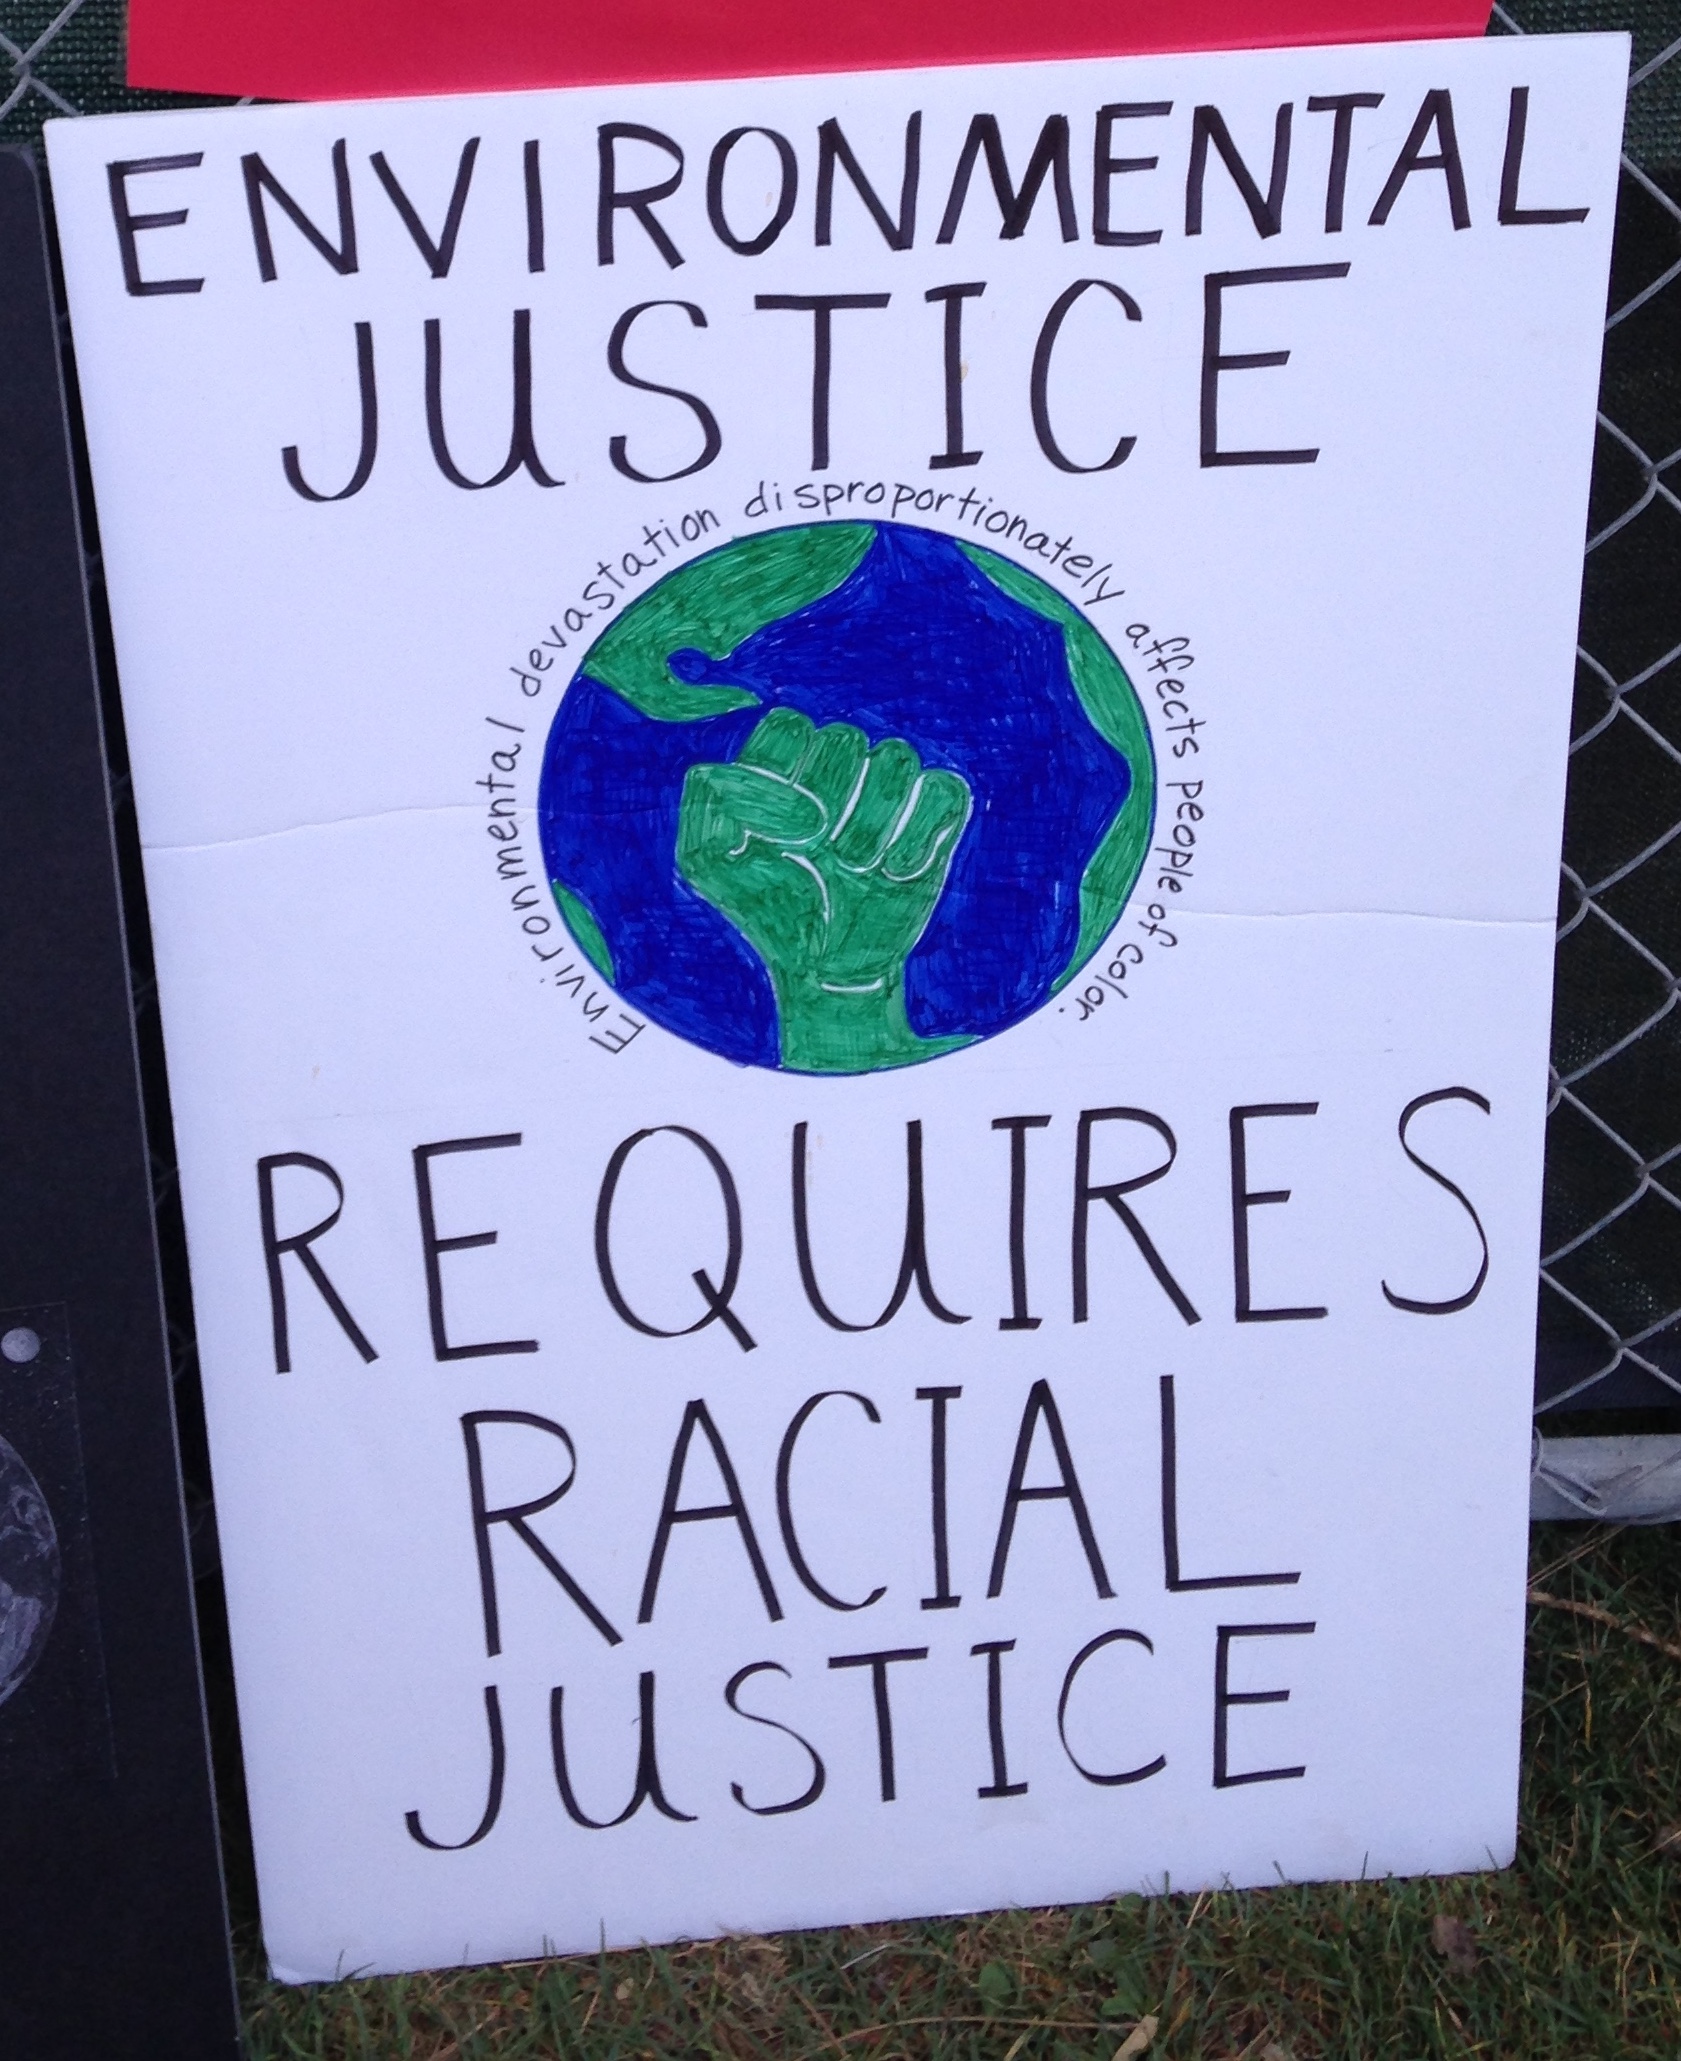 ENVIRONMENTAL
JUSTICE
Environmental devastation disproportionately affects people of color.
REQUIRES
RACIAL
JUSTICE